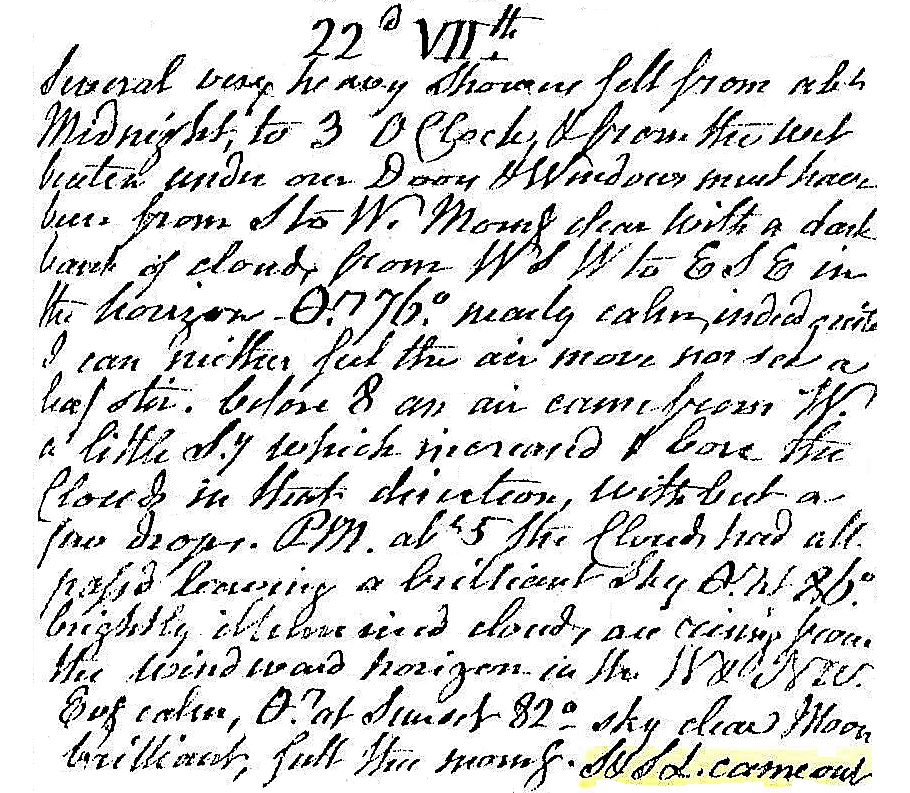 22d VIIth
Several very heavy Showers fell from abt
Midnight, to 3 O Clock, & from the wet
beaten under our Doors & Windows must have
been from S to W. Morng clear with a dark
bank of clouds, from W S W to E S E in
the horizon - 76° nearly calm, indeed quite
I can neither feel the air move nor see a
leaf stir. before 8 an air came from W.
a little S.y which increased & bore the
Clouds in that direction, with but a
few drops. PM. abt 5 the Clouds had all
passd leaving a brilliant Sky at 86°
brightly illumined clouds, are rising from
the windward horizon in the W & NW.
Evg calm, at Sunset 82° sky clear Moon
brilliant, full this morng. came out